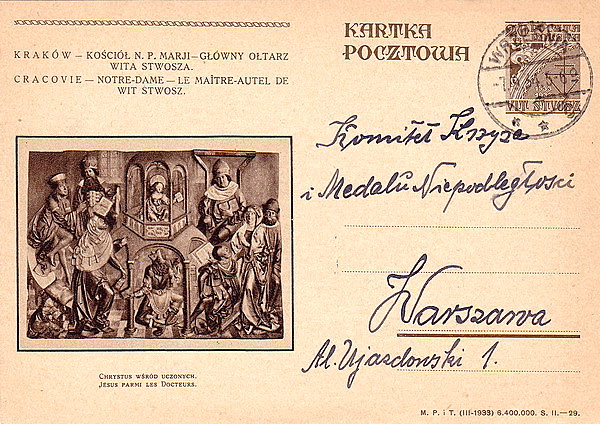 KRAKÓW — KOŚCIÓŁ N. P. MARJI — GŁÓWNY OŁTARZ
WITA STWOSZA.
CRACOVIE — NOTRE-DAME — LE MAÎTRE-AUTEL DE
WIT STWOSZ.
KARTKA
POCZTOWA
WIT STWOSZ
Komitet Krzyża
i Medalu Niepodległości
Warszawa
Al. Ujazdowski 1.
CHRYSTUS WŚRÓD UCZONYCH.
JÉSUS PARMI LES DOCTEURS.
M. P. i T. (III-1933) 6.400.000. S. II.—29.